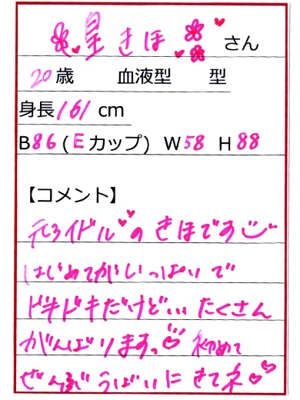 星きほ さん
20歳 血液型 型
身長161cm
B86(Eカップ) W58 H88
【コメント】
元アイドルのきほです
はじめてがいっぱいで
ドキドキだけどぃぃたくさん
がんばりますっ 初めて
ぜんぶうばいにきてネ